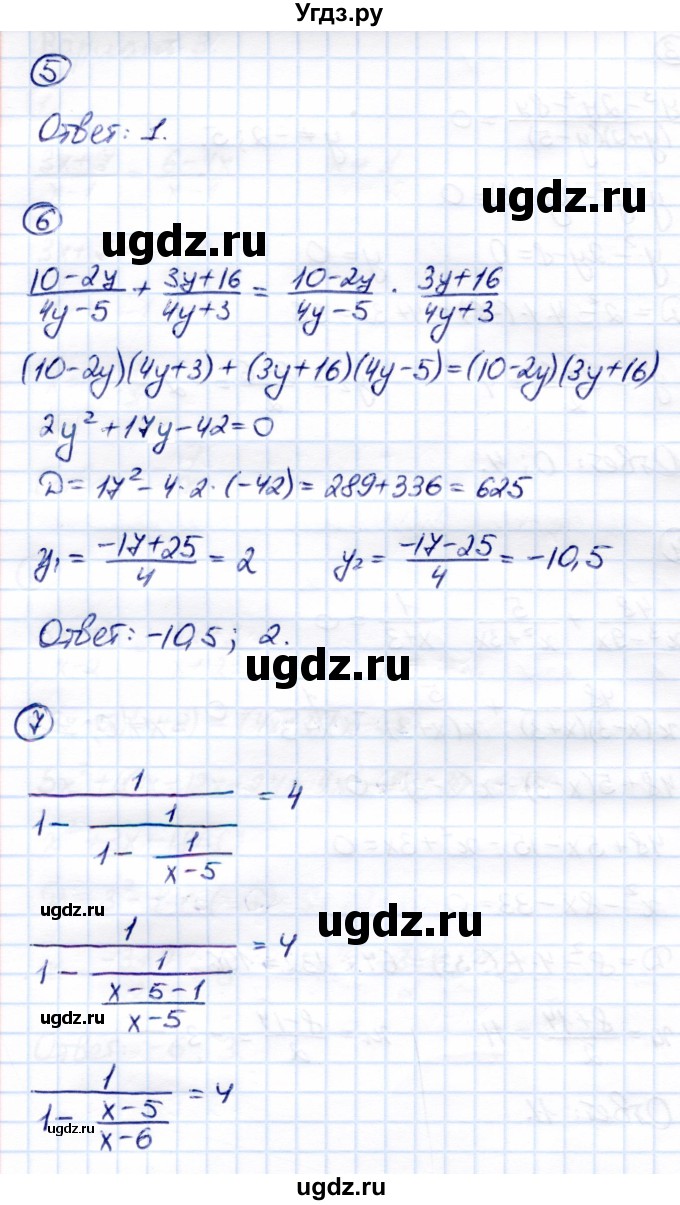 Угдз.ру
5
Ответ: 1.
6
ugdz.ru
ugdz.ru
(10-2y)/(4y-5) + (3y+16)/(4y+3) = (10-2y)/(4y-5) · (3y+16)/(4y+3)
(10-2y)(4y+3) + (3y+16)(4y-5) = (10-2y)(3y+16)
2y² + 17y - 42 = 0
D = 17² - 4·2·(-42) = 289 + 336 = 625
y₁ = (-17+25)/4 = 2 y₂ = (-17-25)/4 = -10,5
Ответ: -10,5; 2.
ugdz.ru
7
1/(1 - 1/(1 - 1/(x-5))) = 4
ugdz.ru
ugdz.ru
1/(1 - 1/((x-5-1)/(x-5))) = 4
ugdz.ru
1/(1 - (x-5)/(x-6)) = 4
ugdz.ru
ugdz.ru